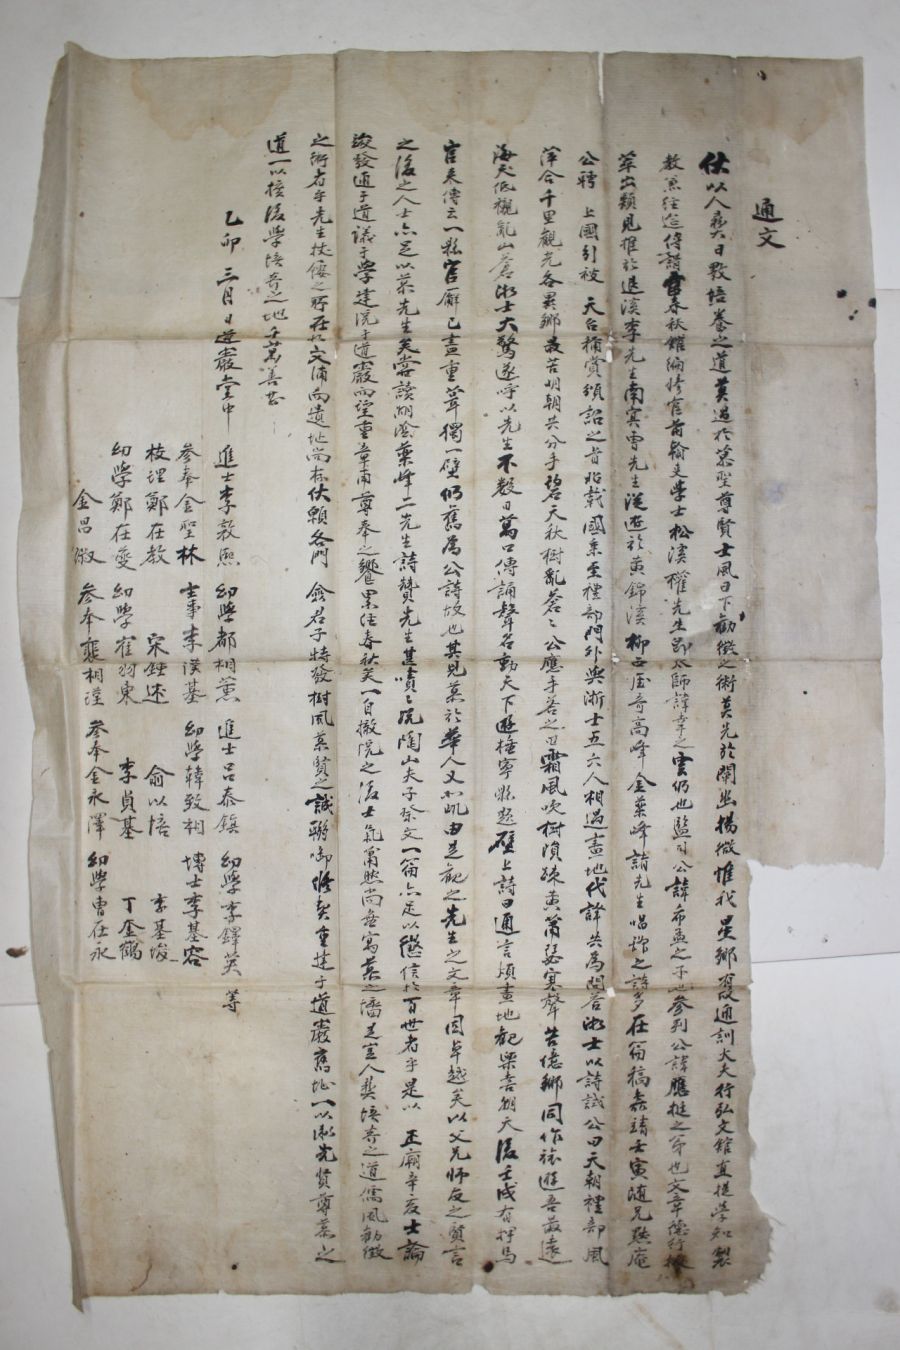 通文
伏以人彝日斁培養之道莫過於慕聖尊賢士風日下勸徵之術莫先於闡幽揚微惟我星鄉有通訓大夫行弘文館直提學知製
教兼經筵侍講官春秋館編修官翰吏學士松溪權先生即太師諱幸之雲仍也監司公諱希孟之子也參判公諱應挺之弟也文章德行
萃出類見推於退溪李先生南冥曺先生從遊於黃錦溪柳西厓奇高峰金藥峰諸先生唱酬之詩多在翁稿嘉靖壬寅隨兄默庵
公聘 上國引被 天台稱賞頒詔之首於載國乘至禮部門外與浙士五六人相遇畫地代譯共爲問答浙士以詩試公曰天朝禮部風
萍合千里觀光各異鄉最苦明朝共分手碧天秋樹亂蒼蒼公應手答之曰霜風吹樹隕殊黃蕭瑟寒聲苦憶鄉同作旅遊吾最遠
海天低襯亂山蒼浙士大驚遂呼以先生不數日萬口傳誦聲名動天下遊撫寧縣題壁上詩曰通言煩畫地觀樂喜朝天後壬戌有押馬
官來傳云一縣官廨已盡重葺獨一壁仍舊爲公詩故也其見慕於華人又如此由是觀之先生之文章固卓越矣以父兄師友之賢言
之後之人士亦足以慕先生矣嘗讀湖陰藥峰二先生詩贊先生甚嘖嘖況陶山夫子祭文一篇亦足以徵信於百世者乎是以 正廟辛亥士論
竣發通于道議于學建院于道巖而望重章甫尊奉之饗累住春秋矣一自撤院之後士氣蕭然尚無寓慕之所豈人彝培養之道儒風勸徵
之術者乎先生杖屨之所在於文浦而遺址尚存伏願各門 僉君子特發樹風慕賢之誠聯御修契重建于道巖舊址一以淑先賢尊慕之
道一以接後學培養之地千萬善甚
乙卯 三月 日 道巖堂中 進士李敦熙 幼學都相薰 進士呂泰鎮 幼學李鐸英 等
參奉金聖林 士事李漢基 幼學韓致相 博士李基容
校理鄭在教 宋鍾述 俞以培 李基峻
幼學鄭在夔 幼學崔羽東 李貞基 丁奎鶴
金昌淑 參奉裵相瑾 參奉金永澤 幼學曺在永